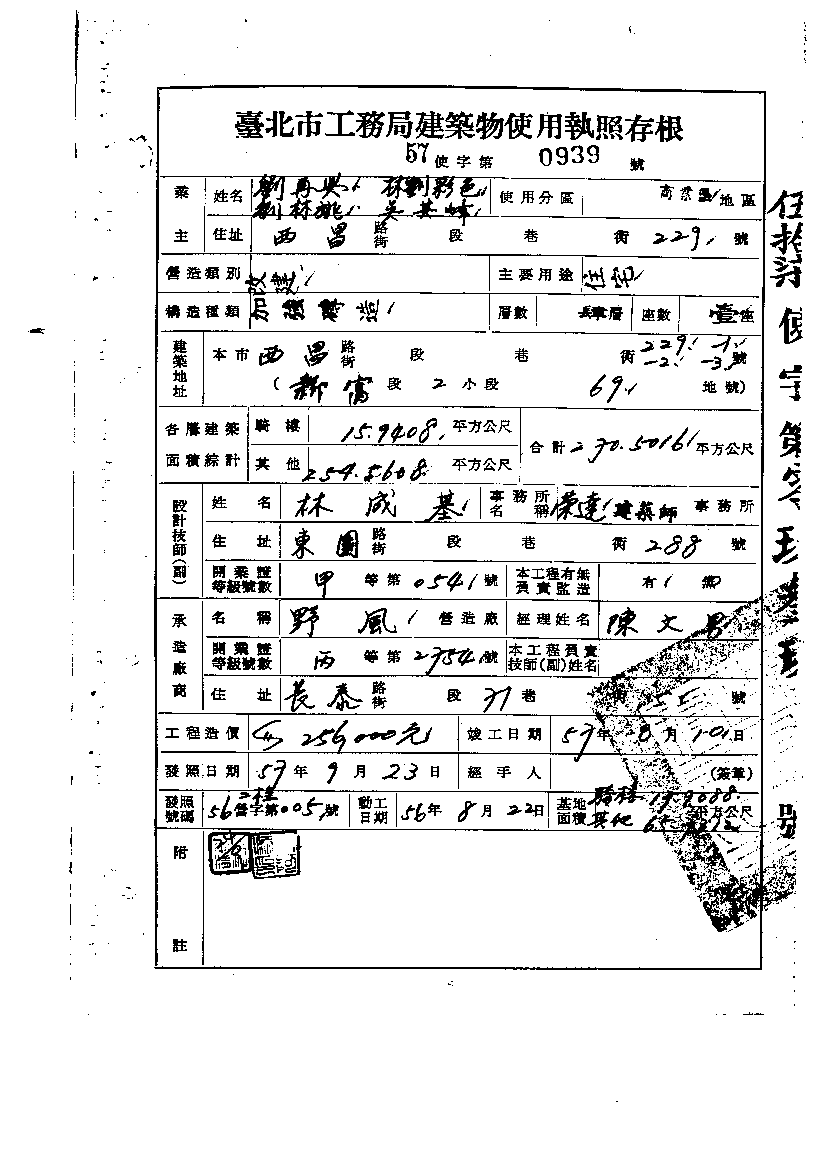 臺北市工務局建築物使用執照存根
57使字第 0939 號
業主 姓名 劉再興 林劉彩色 劉林桃 吳其峰 使用分區 商業區地區
住址 西昌路街 段 巷 街 229 號
營造類別 改建 主要用途 住宅
構造種類 加強磚造 層數 層 座數 壹座
建築地址 本市 西昌路街 段 巷 街 229 -1 -2 -3 號
(新富段 2 小段 69 地號)
各層建築面積綜計 騎樓 15.9408 平方公尺 合計 270.5016 平方公尺
其他 254.5608 平方公尺
設計技師(副) 姓名 林成基 事務所名稱 榮達建築師事務所
住址 東園路街 段 巷 街 288 號
開業證等級號數 甲等第0541號 本工程有無負責監造 有 無
承造廠商 名稱 野風 營造廠 經理姓名 陳文男
開業證等級號數 丙等第2754號 本工程負責技師(副)姓名
住址 長泰路街 段 71 巷 街 號
工程造價 256,000元 竣工日期 57年 月10日
發照日期 57年9月23日 經手人 (簽章)
發照號碼 56 營字第005號 動工日期 56年8月22日 基地面積 騎樓 19.9088 其他 平方公尺
附註
伍拾柒使字第零玖叁玖 號